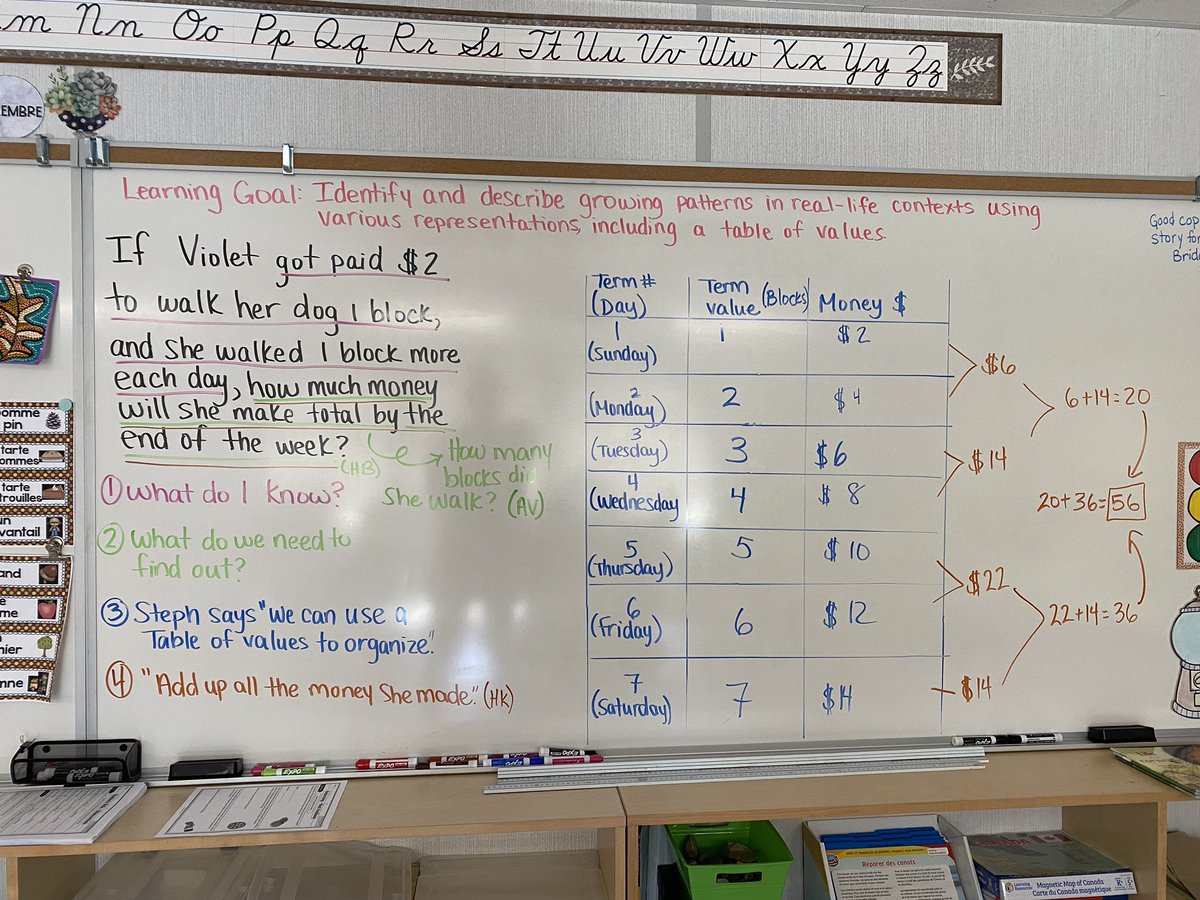 m Nn Oo Pp Qq Rr Ss Tt Uu Vv Ww Xx Yy Zz
EMBRE
Learning Goal: Identify and describe growing patterns in real-life contexts using
various representations, including a table of values.
If Violet got paid $2
to walk her dog 1 block,
and she walked 1 block more
each day, how much money
will she make total by the
end of the week?
(HB)
How many
blocks did
she walk? (AV)
① What do I know?
② What do we need to
find out?
③ Steph says "we can use a
Table of values to organize".
④ "Add up all the money she made." (HK)
Term # (Day) Term value (Blocks) Money $
1 (Sunday) 1 $2
2 (Monday) 2 $4
3 (Tuesday) 3 $6
4 (Wednesday 4 $8
5 (Thursday) 5 $10
6 (Friday) 6 $12
7 (Saturday) 7 $14
$6
$14
$22
$14
6+14=20
20+36=56
22+14=36
Good cop
story for
Brid
pomme
pin
tarte
ommes
tarte
trouilles
un
vantail
and
me
nier
nne
EXPO
EXPO
Réparer des canots
Learning Resources
Magnetic Map of Canada
Carte du Canada magnétique